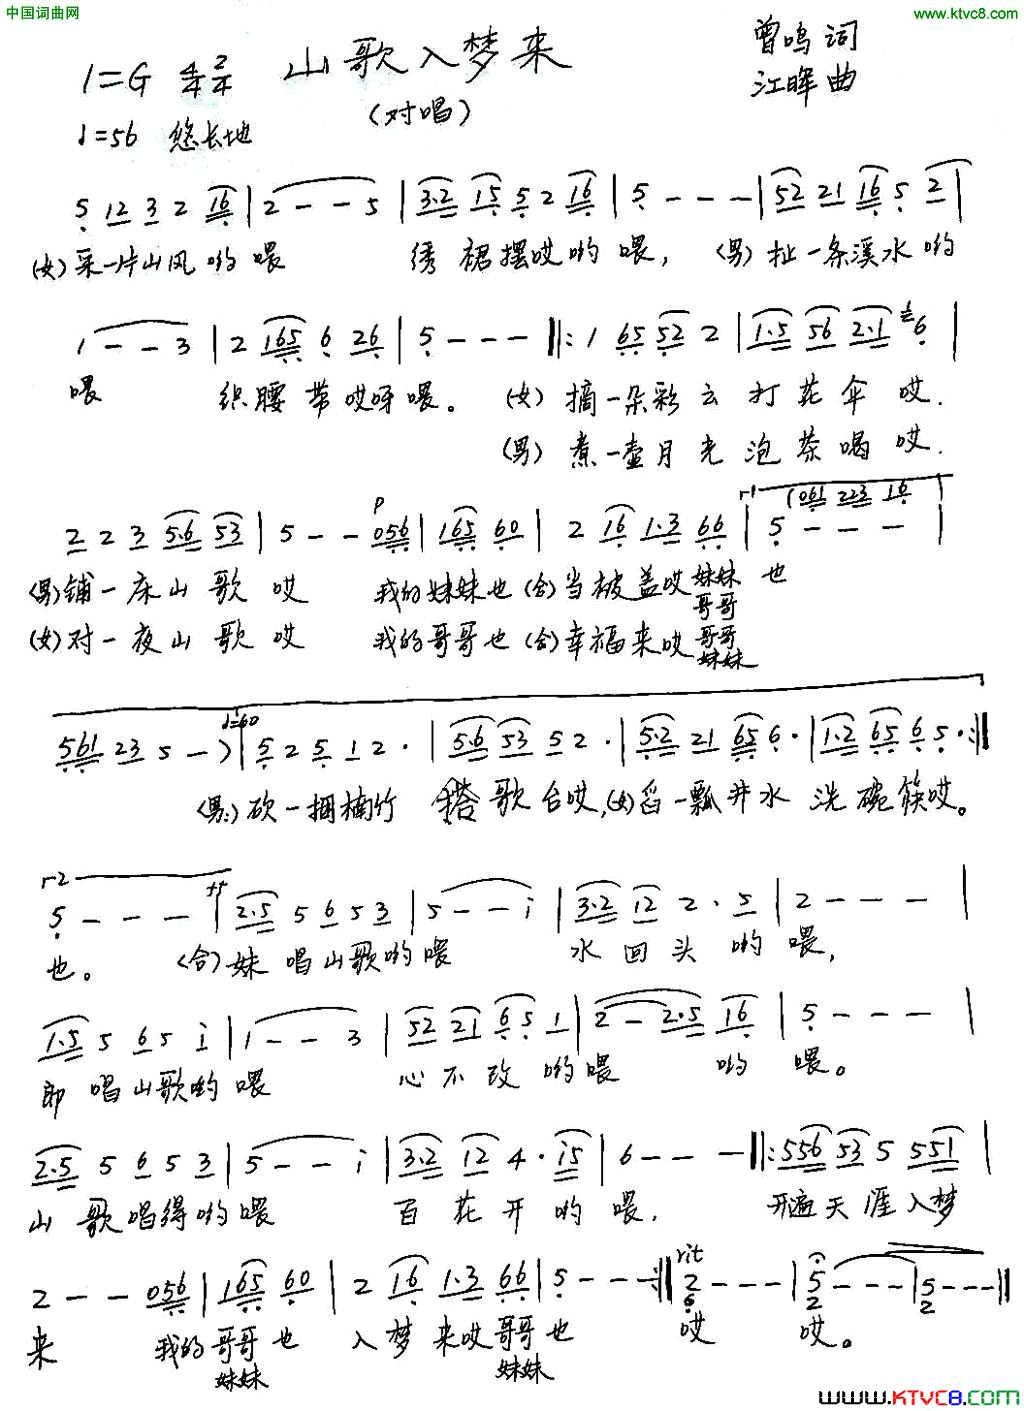 中国词曲网
www.ktvc8.com
1=G 4/4 2/4 山歌入梦来 曾鸣词
(对唱) 江晖曲
♩=56 悠长地
5 12 3 2 16 | 2 - - 5 | 3·2 15 5 2 16 | 5 - - - | 52 21 16 5 2 |
(女)采一片山风哟喂 绣裙摆哎哟喂, (男)扯一条溪水哟
1 - - 3 | 2 165 6 26 | 5 - - - ‖: 1 65 52 2 | 1·5 56 2·1 6 |
喂 织腰带哎呀喂。 (女)摘一朵彩云打花伞哎.
(男)煮一壶月光泡茶喝哎.
2 2 3 5·6 53 | 5 - - 056 | 165 60 | 2 16 1·3 66 | 5 - - - |
p
(061 223 16
(男)铺一床山歌哎 我的妹妹也(合)当被盖哎妹妹也
哥哥
(女)对一夜山歌哎 我的哥哥也(合)幸福来哎哥哥
妹妹
561 23 5 -) | 5 2 5 1 2· | 5·6 53 5 2· | 5·2 21 65 6· | 1·2 65 6 5· :‖
♩=60
(男)砍一捆楠竹 搭歌台哎,(女)舀一瓢井水洗碗筷哎。
5 - - - | 2·5 5 6 5 3 | 5 - - i | 3·2 12 2· 5 | 2 - - - |
也。 (合)妹唱山歌哟喂 水回头哟喂,
1·5 5 6 5 i | 1 - - 3 | 52 21 6 5 1 | 2 - 2·5 16 | 5 - - - |
郎唱山歌哟喂 心不改哟喂 哟喂。
2·5 5 6 5 3 | 5 - - i | 3·2 12 4· i5 | 6 - - - ‖: 556 53 5 551 |
山歌唱得哟喂 百花开哟喂, 开遍天涯入梦
rit
2 - - 056 | 165 60 | 2 16 1·3 66 | 5 - - - :‖ 2 - - - | 5 - - - | 5 - - - ‖
6 2 2
来 我的哥哥也 入梦来哎哥哥也 哎 哎。
妹妹 妹妹
www.KTVC8.com